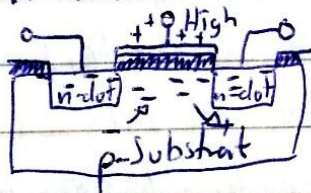 High
n-dot n-dot
p-Substrat